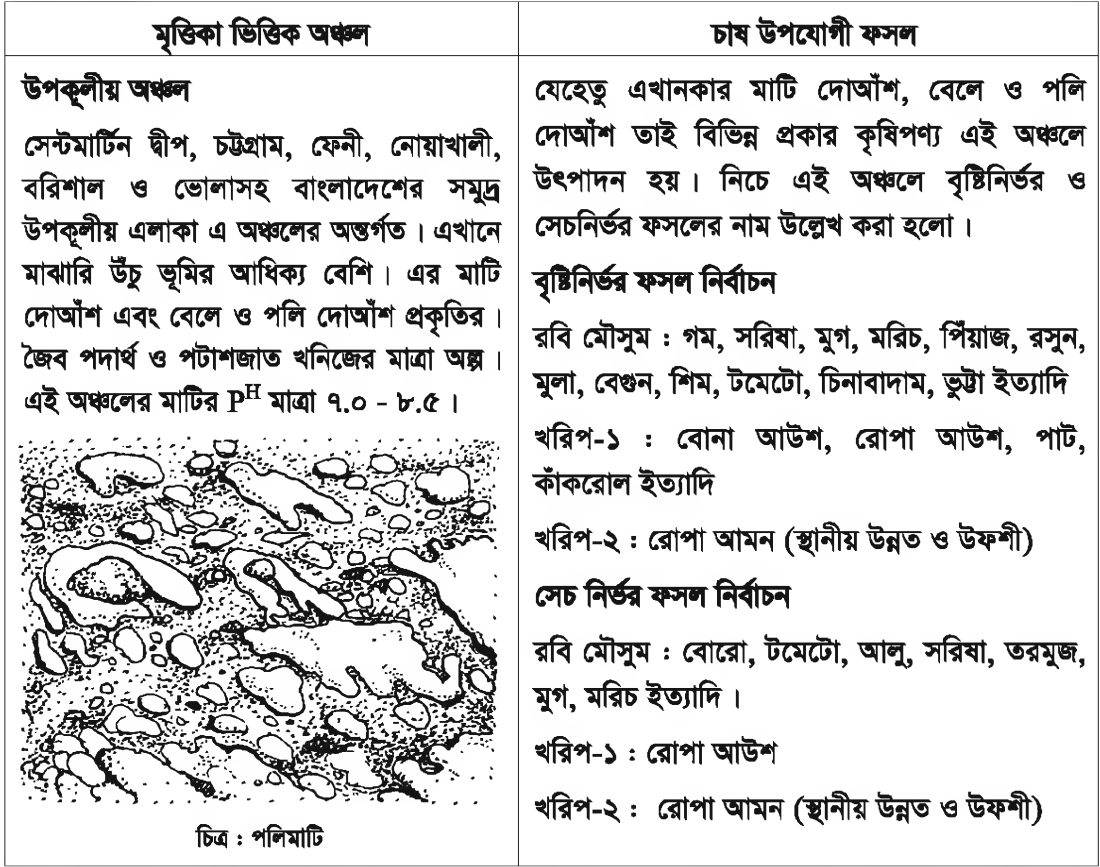 মৃত্তিকা ভিত্তিক অঞ্চল
চাষ উপযোগী ফসল
উপকূলীয় অঞ্চল
সেন্টমার্টিন দ্বীপ, চট্টগ্রাম, ফেনী, নোয়াখালী,
বরিশাল ও ভোলাসহ বাংলাদেশের সমুদ্র
উপকূলীয় এলাকা এ অঞ্চলের অন্তর্গত । এখানে
মাঝারি উঁচু ভূমির আধিক্য বেশি । এর মাটি
দোআঁশ এবং বেলে ও পলি দোআঁশ প্রকৃতির ।
জৈব পদার্থ ও পটাশজাত খনিজের মাত্রা অল্প ।
এই অঞ্চলের মাটির Pᴴ মাত্রা ৭.০ - ৮.৫ ।
চিত্র : পলিমাটি
যেহেতু এখানকার মাটি দোআঁশ, বেলে ও পলি
দোআঁশ তাই বিভিন্ন প্রকার কৃষিপণ্য এই অঞ্চলে
উৎপাদন হয় । নিচে এই অঞ্চলে বৃষ্টিনির্ভর ও
সেচনির্ভর ফসলের নাম উল্লেখ করা হলো ।
বৃষ্টিনির্ভর ফসল নির্বাচন
রবি মৌসুম : গম, সরিষা, মুগ, মরিচ, পিঁয়াজ, রসুন,
মুলা, বেগুন, শিম, টমেটো, চিনাবাদাম, ভুট্টা ইত্যাদি
খরিপ-১ : বোনা আউশ, রোপা আউশ, পাট,
কাঁকরোল ইত্যাদি
খরিপ-২ : রোপা আমন (স্থানীয় উন্নত ও উফশী)
সেচ নির্ভর ফসল নির্বাচন
রবি মৌসুম : বোরো, টমেটো, আলু, সরিষা, তরমুজ,
মুগ, মরিচ ইত্যাদি ।
খরিপ-১ : রোপা আউশ
খরিপ-২ : রোপা আমন (স্থানীয় উন্নত ও উফশী)